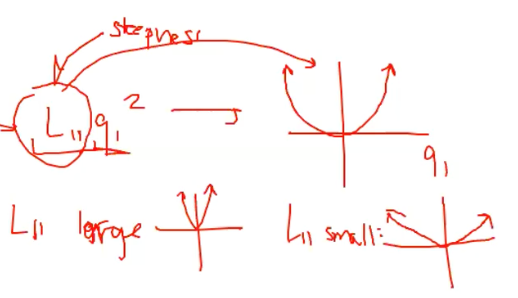 steepness
L₁₁q₁²
q₁
L₁₁ large
L₁₁ small: